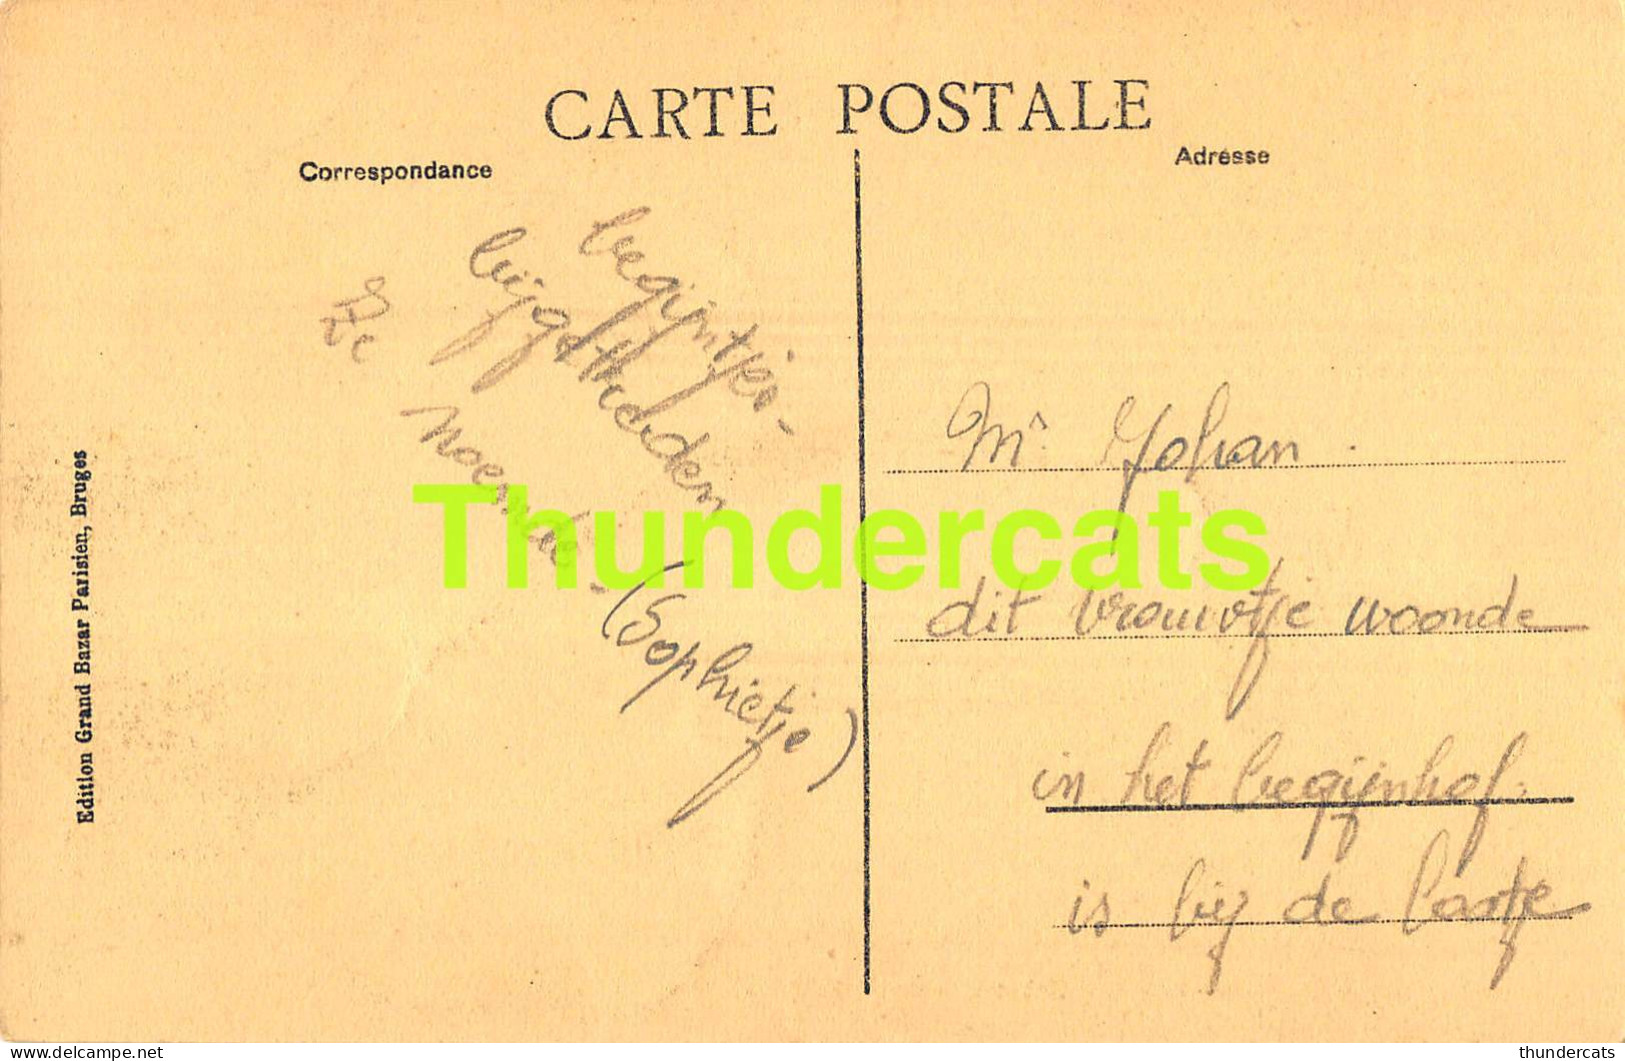 CARTE POSTALE
Correspondance
Adresse
begijntje-
bijgetheiden
Ze noemde - (Sophietje)
Mr Johan.
dit vrouwtje woonde
in het begijnhof.
is bij de
Edition Grand Bazar Parisien, Bruges
Thundercats
thundercats
https://www.delcampe.net